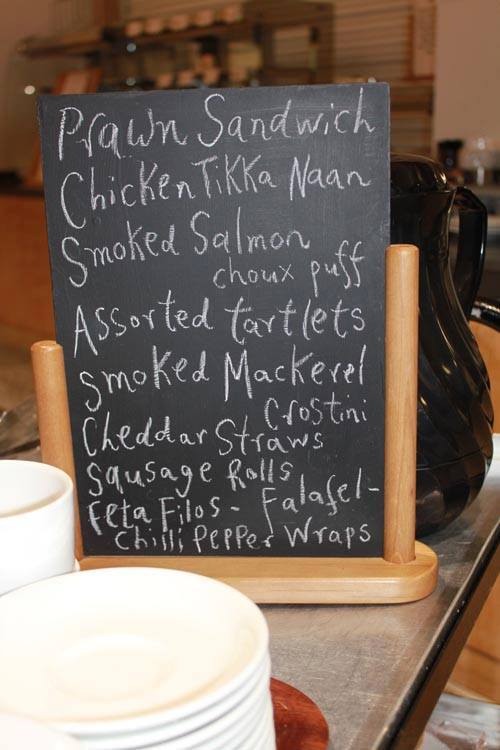 Prawn Sandwich
Chicken Tikka Naan
Smoked Salmon
choux puff
Assorted tartlets
Smoked Mackerel
Crostini
Cheddar Straws
Sausage Rolls
Feta Filos - Falafel-
Chilli Pepper Wraps